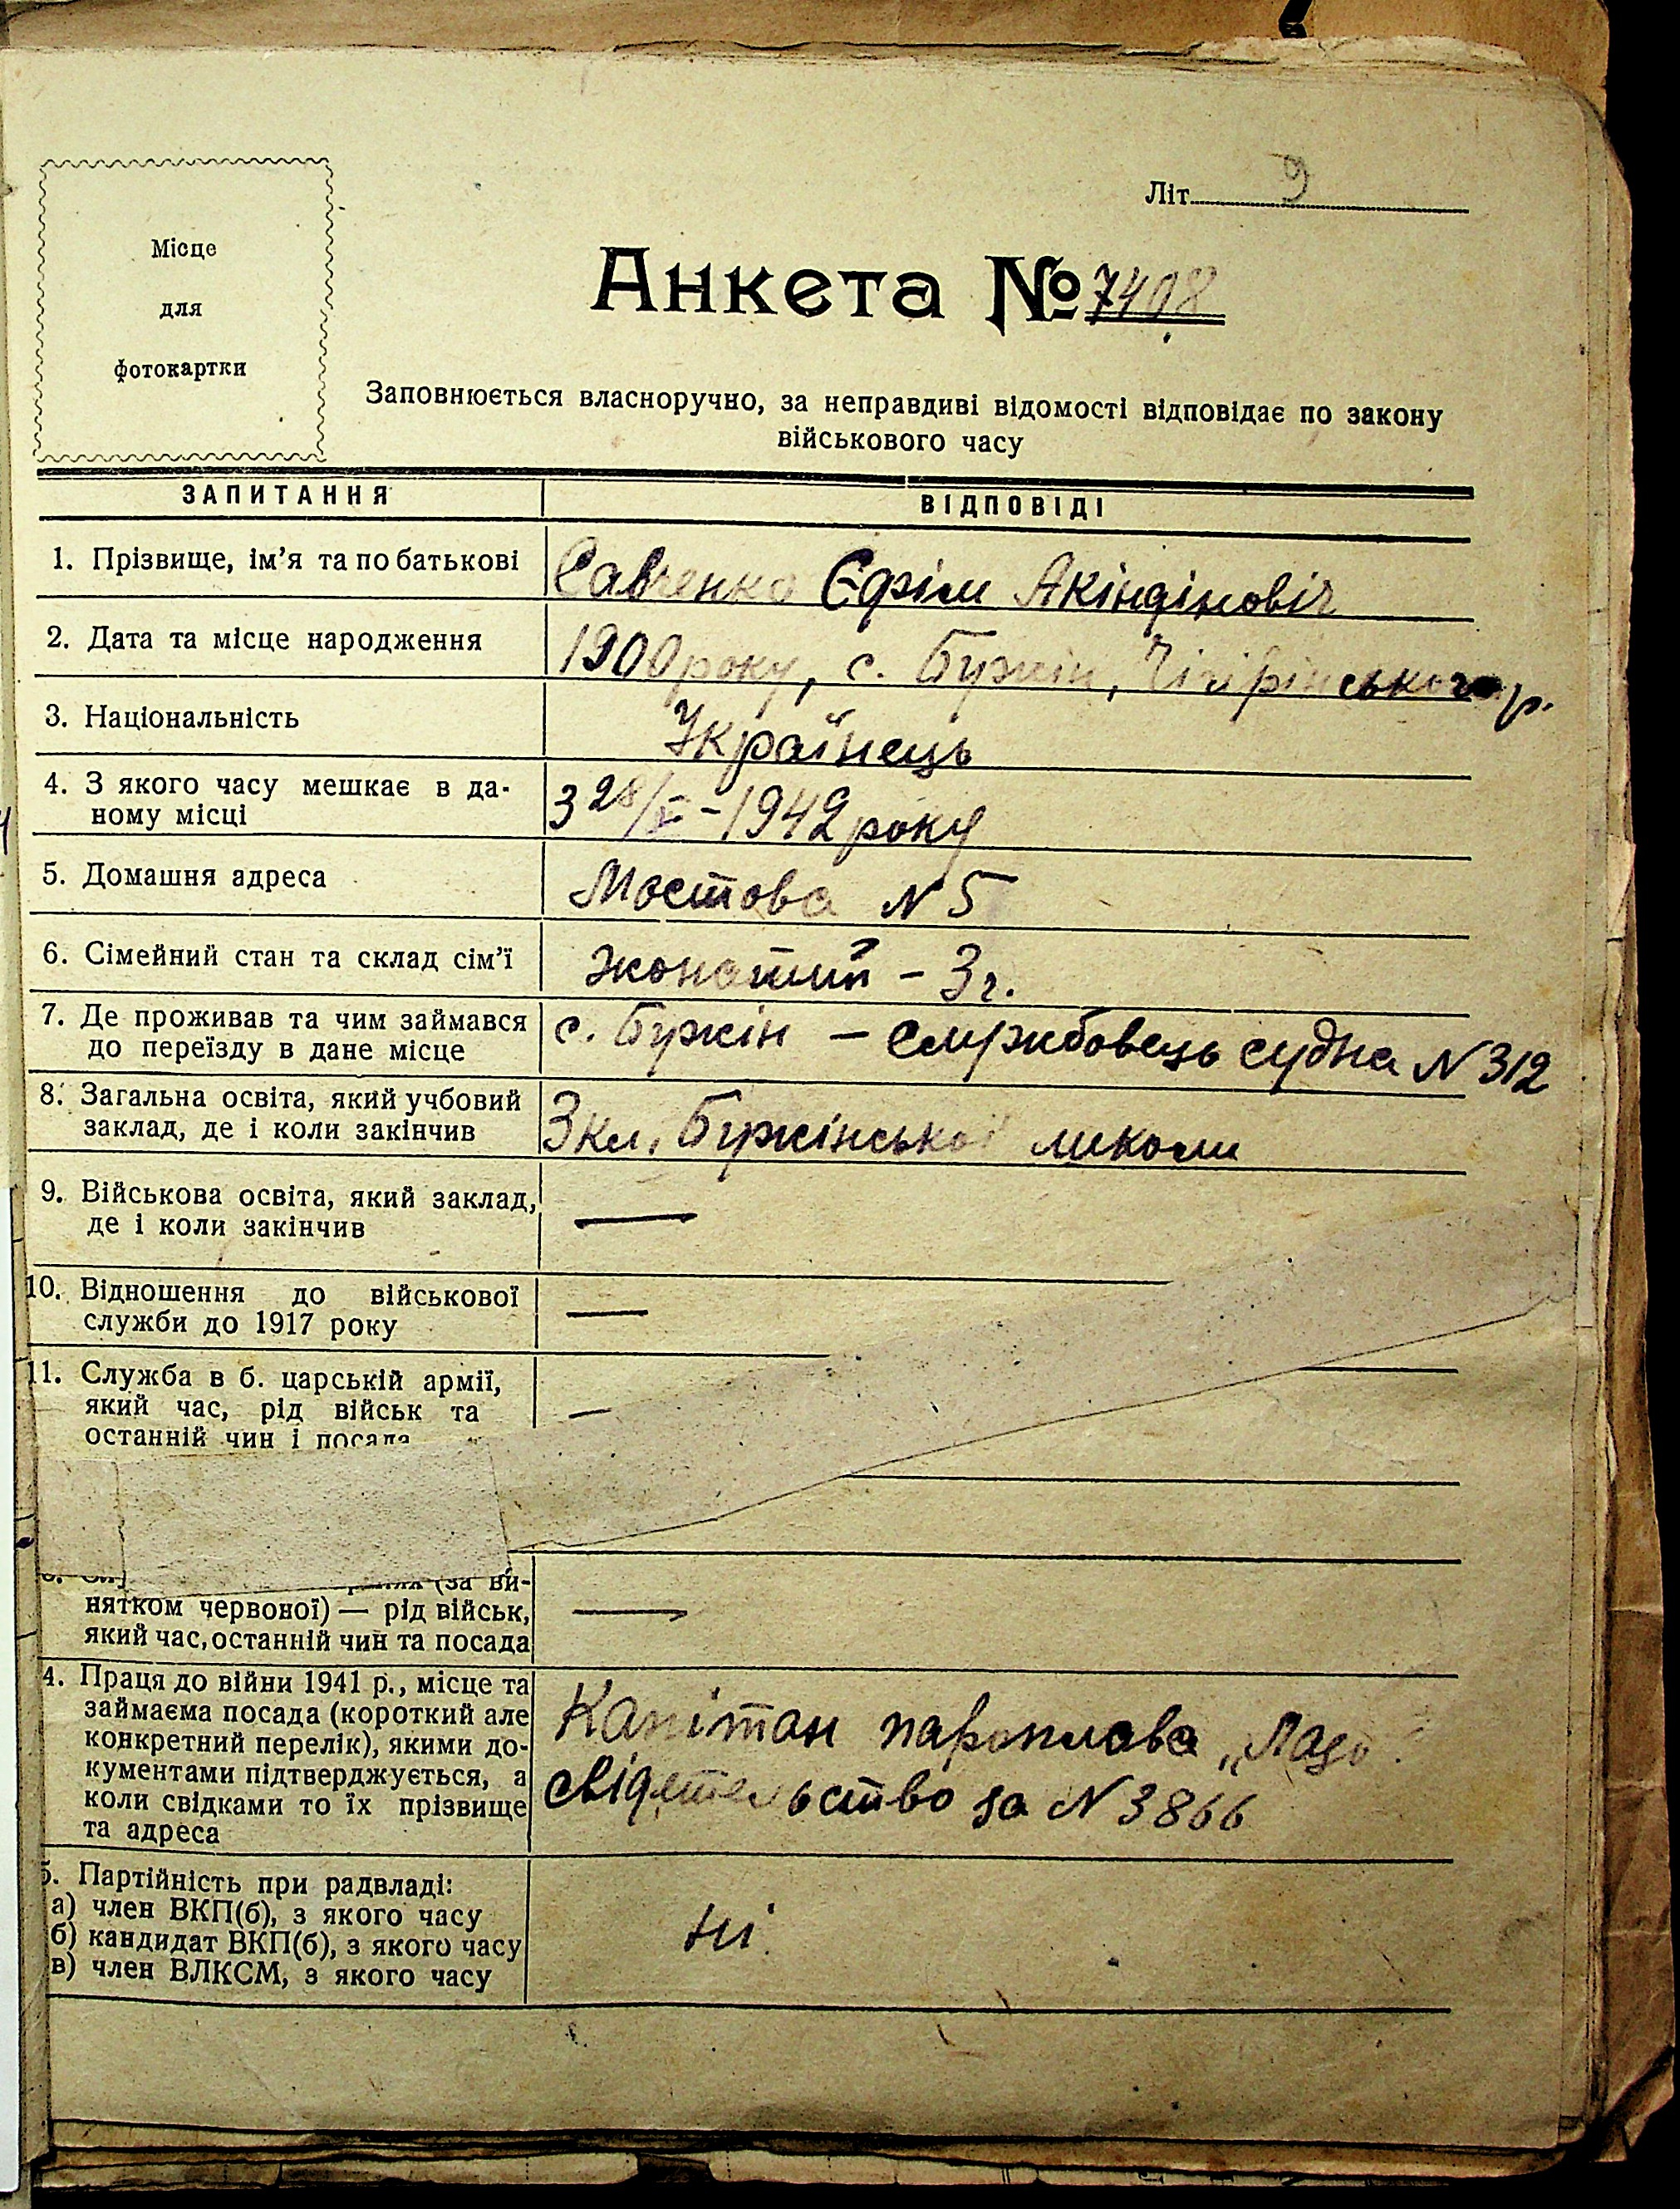 Літ. 9
Місце
для
фотокартки
Анкета № 7408
Заповнюється власноручно, за неправдиві відомості відповідає по закону
військового часу
ЗАПИТАННЯ ВІДПОВІДІ
1. Прізвище, ім’я та по батькові Савченко Єфім Акіндіновіч
2. Дата та місце народження 1900 року, с. Бужін, Чігірінського р.
3. Національність Українець
4. З якого часу мешкає в да-
ному місці З 28/ -1942 року
5. Домашня адреса Мостова N 5
6. Сімейний стан та склад сім’ї жонатий – 3 г.
7. Де проживав та чим займався
до переїзду в дане місце с. Бужін – службовець судна N 312
8. Загальна освіта, який учбовий
заклад, де і коли закінчив 3 кл. Бужінської школи
9. Військова освіта, який заклад,
де і коли закінчив —
10. Відношення до військової
служби до 1917 року —
11. Служба в б. царській армії,
який час, рід військ та
останній чин і посада —
(за ви-
нятком червоної) — рід військ,
який час, останній чин та посада —
4. Праця до війни 1941 р., місце та
займаєма посада (короткий але
конкретний перелік), якими до-
кументами підтверджується, а
коли свідками то їх прізвище
та адреса
Капітан пароплава „Лазо
свідетельство за N 3866
5. Партійність при радвладі:
а) член ВКП(б), з якого часу
б) кандидат ВКП(б), з якого часу
в) член ВЛКСМ, з якого часу
Ні.